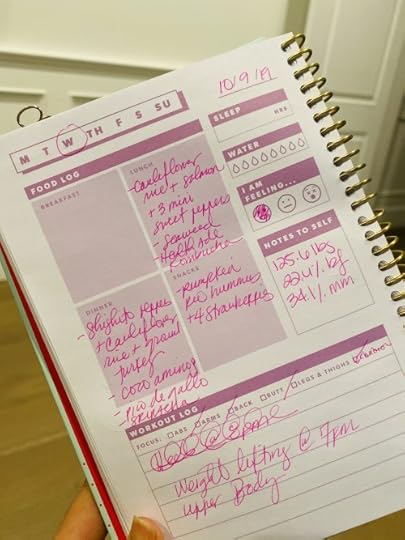 10/9/19
M T W TH F S SU
SLEEP
HRS
WATER
I AM
FEELING...
NOTES TO SELF
125.6 lbs
22.4% bf
34.1% mm
FOOD LOG
BREAKFAST
LUNCH
Cauliflower
rice + salmon
+ 3 mini
sweet peppers
- Seaweed
- Health ade
Kombucha
SNACKS
pumpkin
pie hummus
+ 4 strawberries
DINNER
- Shishito peppers
+ Cauliflower
rice + ground
turkey
- coco aminos
- pico de gallo
WORKOUT LOG
FOCUS: ABS ARMS BACK BUTT LEGS & THIGHS
Weight lifting @ 7pm
upper Body